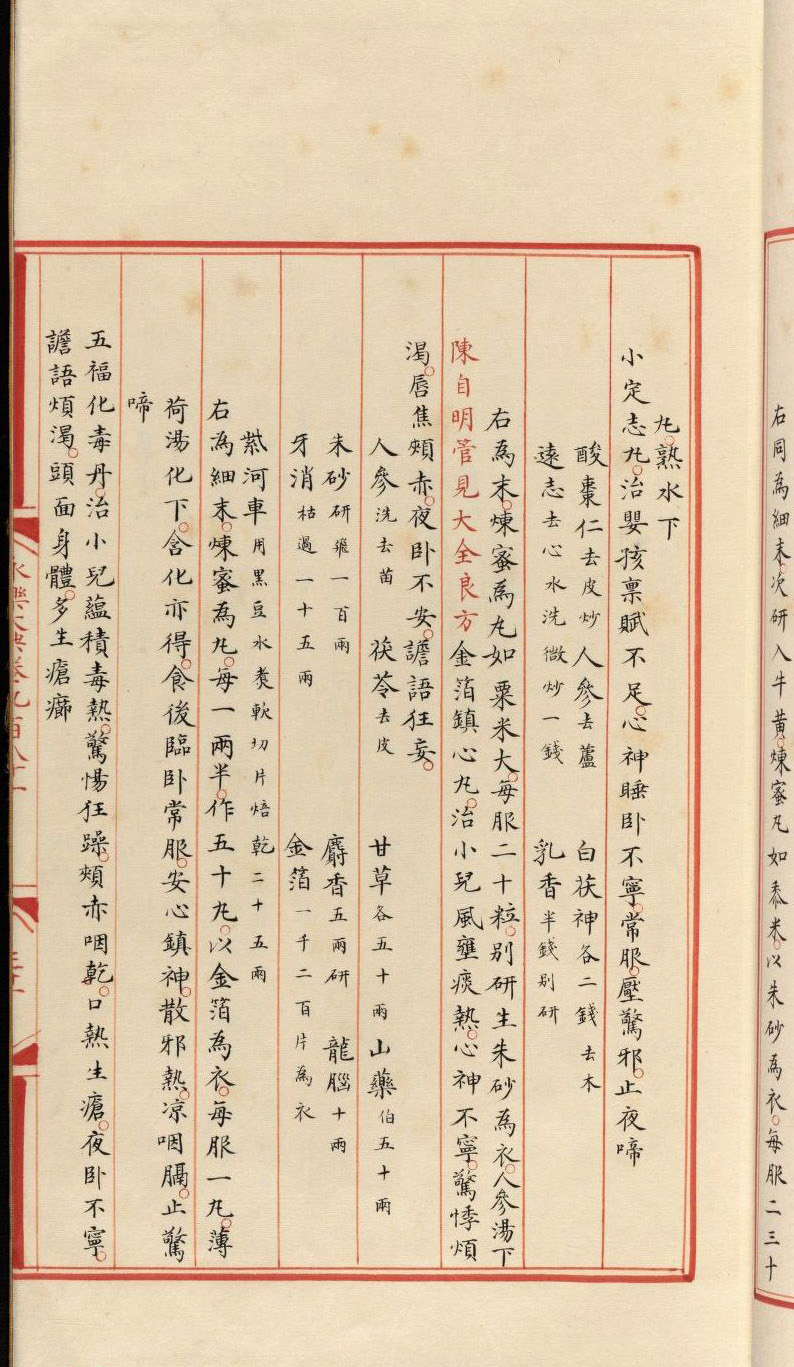 右同為細末次研入牛黄煉蜜丸如黍米以朱砂為衣每服二三十
丸熟水下
小定志丸治嬰孩禀賦不足心神睡卧不寧常服壓驚邪止夜啼
酸棗仁去皮炒 人參去蘆 白茯神各二錢去木
遠志去心水洗微炒一錢 乳香半錢别研
右為末煉蜜為丸如粟米大每服二十粒别研生朱砂為衣人參湯下
陳自明管見大全良方金箔鎮心丸治小兒風壅痰熱心神不寧驚悸煩
渴唇焦頰赤夜卧不安譫語狂妄
人參洗去苗 茯苓去皮 甘草各五十兩 山藥伯五十兩
朱砂研飛一百兩 麝香五兩研 龍腦十兩
牙消枯過一十五兩 金箔一千二百片為衣
紫河車用黑豆水煮軟切片焙乾二十五兩
右為細末煉蜜為丸每一兩半作五十丸以金箔為衣每服一丸薄
荷湯化下含化亦得食後臨卧常服安心鎮神散邪熱凉咽膈止驚
啼
五福化毒丹治小兒蘊積毒熱驚惕狂躁頰赤咽乾口熱生瘡夜卧不寧
譫語煩渴頭面身體多生瘡癤
永樂大典卷九百八十一